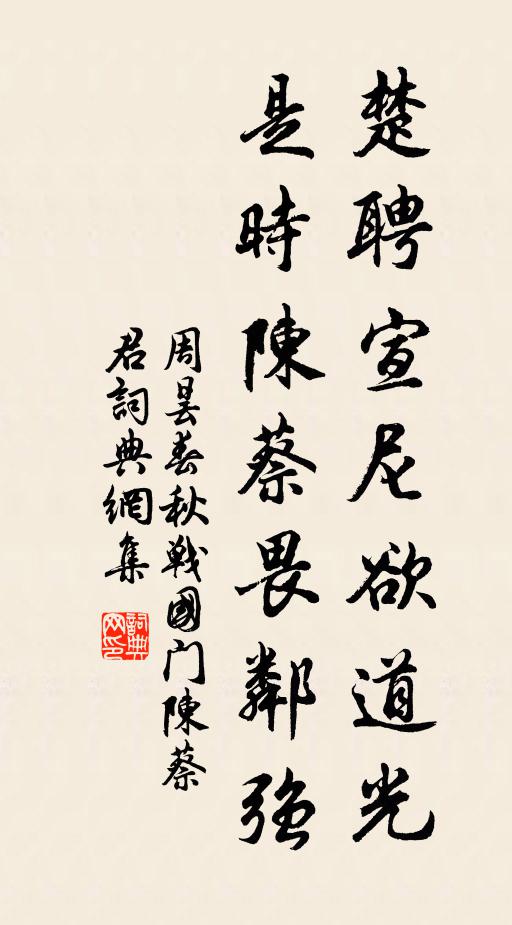 楚聘宣尼欲道光
是時陳蔡畏鄰強
周昙春秋戰國门陳蔡
君詞典網集
詞典
网印